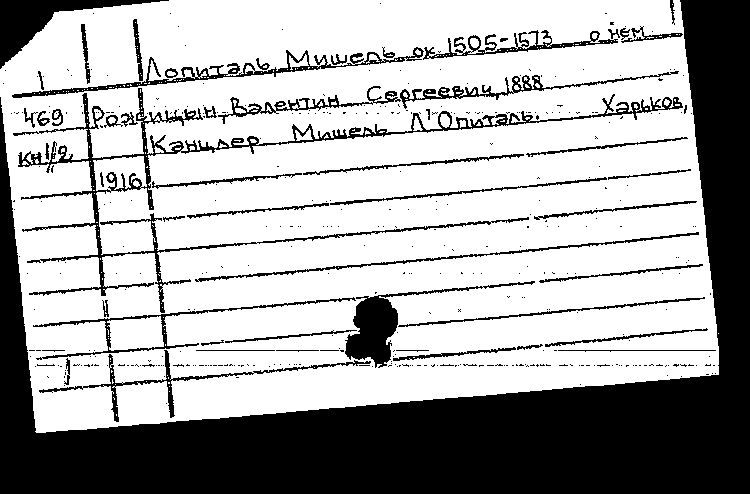 1 Лопиталь, Мишель ок 1505-1573 о нём
469 Рожицын, Валентин Сергеевич, 1888
Канцлер Мишель Л'Опиталь. Харьков,
кн
1916.